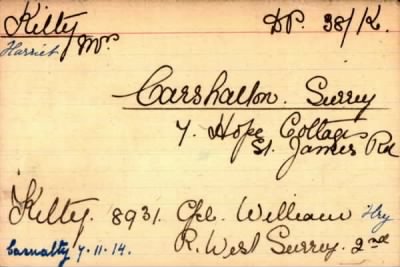 Kilty DP. 38/K.
Harriet Mrs
Carshalton. Surrey
7. Hope Cottages
St. James Rd
Kilty. 8931. Cpl. William Hry
Casualty 7.11.14. R. West Surrey. 2nd